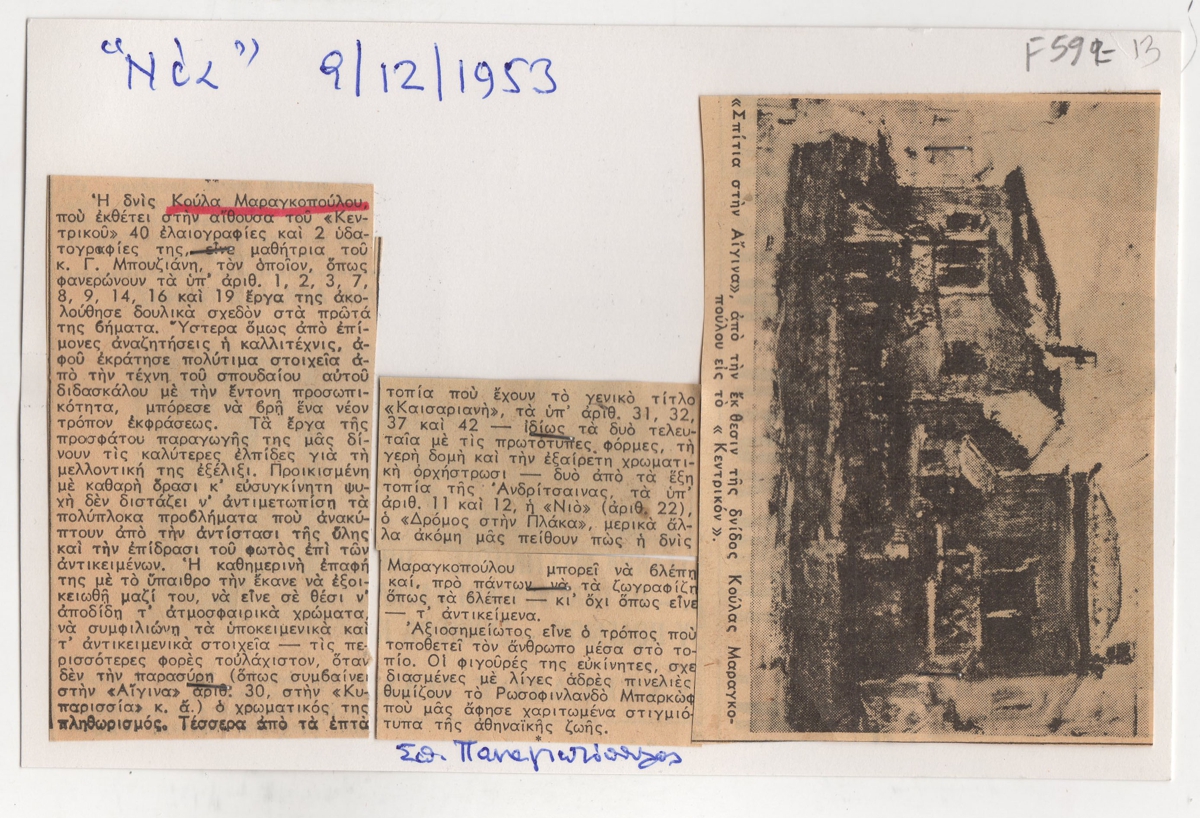 “Νέα” 9/12/1953
F592-13
Ἡ δνὶς Κούλα Μαραγκοπούλου,
ποὺ ἐκθέτει στὴν αἴθουσα τοῦ «Κεν-
τρικοῦ» 40 ἐλαιογραφίες καὶ 2 ὑδα-
τογραφίες της, εἶνε μαθήτρια τοῦ
κ. Γ. Μπουζιάνη, τὸν ὁποῖον, ὅπως
φανερώνουν τὰ ὑπ' ἀριθ. 1, 2, 3, 7,
8, 9, 14, 16 καὶ 19 ἔργα της ἀκο-
λούθησε δουλικὰ σχεδὸν στὰ πρῶτά
της βήματα. Ὕστερα ὅμως ἀπὸ ἐπί-
μονες ἀναζητήσεις ἡ καλλιτέχνις, ἀ-
φοῦ ἐκράτησε πολύτιμα στοιχεῖα ἀ-
πὸ τὴν τέχνη τοῦ σπουδαίου αὐτοῦ
διδασκάλου μὲ τὴν ἔντονη προσωπι-
κότητα, μπόρεσε νὰ βρῇ ἕνα νέον
τρόπον ἐκφράσεως. Τὰ ἔργα τῆς
προσφάτου παραγωγῆς της μᾶς δί-
νουν τὶς καλύτερες ἐλπίδες γιὰ τὴ
μελλοντική της ἐξέλιξι. Προικισμένη
μὲ καθαρὴ ὅρασι κ' εὐσυγκίνητη ψυ-
χὴ δὲν διστάζει ν' ἀντιμετωπίση τὰ
πολύπλοκα προβλήματα ποὺ ἀνακύ-
πτουν ἀπὸ τὴν ἀντίστασι τῆς ὕλης
καὶ τὴν ἐπίδρασι τοῦ φωτὸς ἐπὶ τῶν
ἀντικειμένων. Ἡ καθημερινὴ ἐπαφή
της μὲ τὸ ὕπαιθρο τὴν ἔκανε νὰ ἐξοι-
κειωθῆ μαζί του, νὰ εἶνε σὲ θέσι ν'
ἀποδίδη τ' ἀτμοσφαιρικὰ χρώματα,
νὰ συμφιλιώνη τὰ ὑποκειμενικὰ καὶ
τ' ἀντικειμενικὰ στοιχεῖα — τὶς πε-
ρισσότερες φορὲς τοὐλάχιστον, ὅταν
δὲν τὴν παρασύρη (ὅπως συμβαίνει
στὴν «Αἴγινα» ἀριθ. 30, στὴν «Κυ-
παρισσία» κ. ἄ.) ὁ χρωματικός της
πληθωρισμός. Τέσσερα ἀπὸ τὰ ἑπτὰ
τοπία ποὺ ἔχουν τὸ γενικὸ τίτλο
«Καισαριανὴ», τὰ ὑπ' ἀριθ. 31, 32,
37 καὶ 42 — ἰδίως τὰ δυὸ τελευ-
ταῖα μὲ τὶς πρωτότυπες φόρμες, τὴ
γερὴ δομὴ καὶ τὴν ἐξαίρετη χρωματι-
κὴ ὀρχήστρωσι — δυὸ ἀπὸ τὰ ἕξη
τοπία τῆς Ἀνδρίτσαινας, τὰ ὑπ'
ἀριθ. 11 καὶ 12, ἡ «Νιὸ» (ἀριθ. 22),
ὁ «Δρόμος στὴν Πλάκα», μερικὰ ἄλ-
λα ἀκόμη μᾶς πείθουν πὼς ἡ δνὶς
Μαραγκοπούλου μπορεῖ νὰ βλέπη
καί, πρὸ πάντων νὰ τὰ ζωγραφίζη
ὅπως τὰ βλέπει — κι' ὄχι ὅπως εἶνε
— τ' ἀντικείμενα.
Ἀξιοσημείωτος εἶνε ὁ τρόπος ποὺ
τοποθετεῖ τὸν ἄνθρωπο μέσα στὸ το-
πίο. Οἱ φιγοῦρές της εὐκίνητες, σχε
διασμένες μὲ λίγες ἁδρὲς πινελιὲς
θυμίζουν τὸ Ρωσοφινλανδὸ Μπαρκὼφ
ποὺ μᾶς ἄφησε χαριτωμένα στιγμιό-
τυπα τῆς ἀθηναϊκῆς ζωῆς.
Σπ. Παναγιωτόπουλος
«Σπίτια στὴν Αἴγινα», ἀπὸ τὴν ἔκ θεσιν τῆς δνίδος Κούλας Μαραγκο-
πούλου εἰς τὸ «Κεντρικόν».